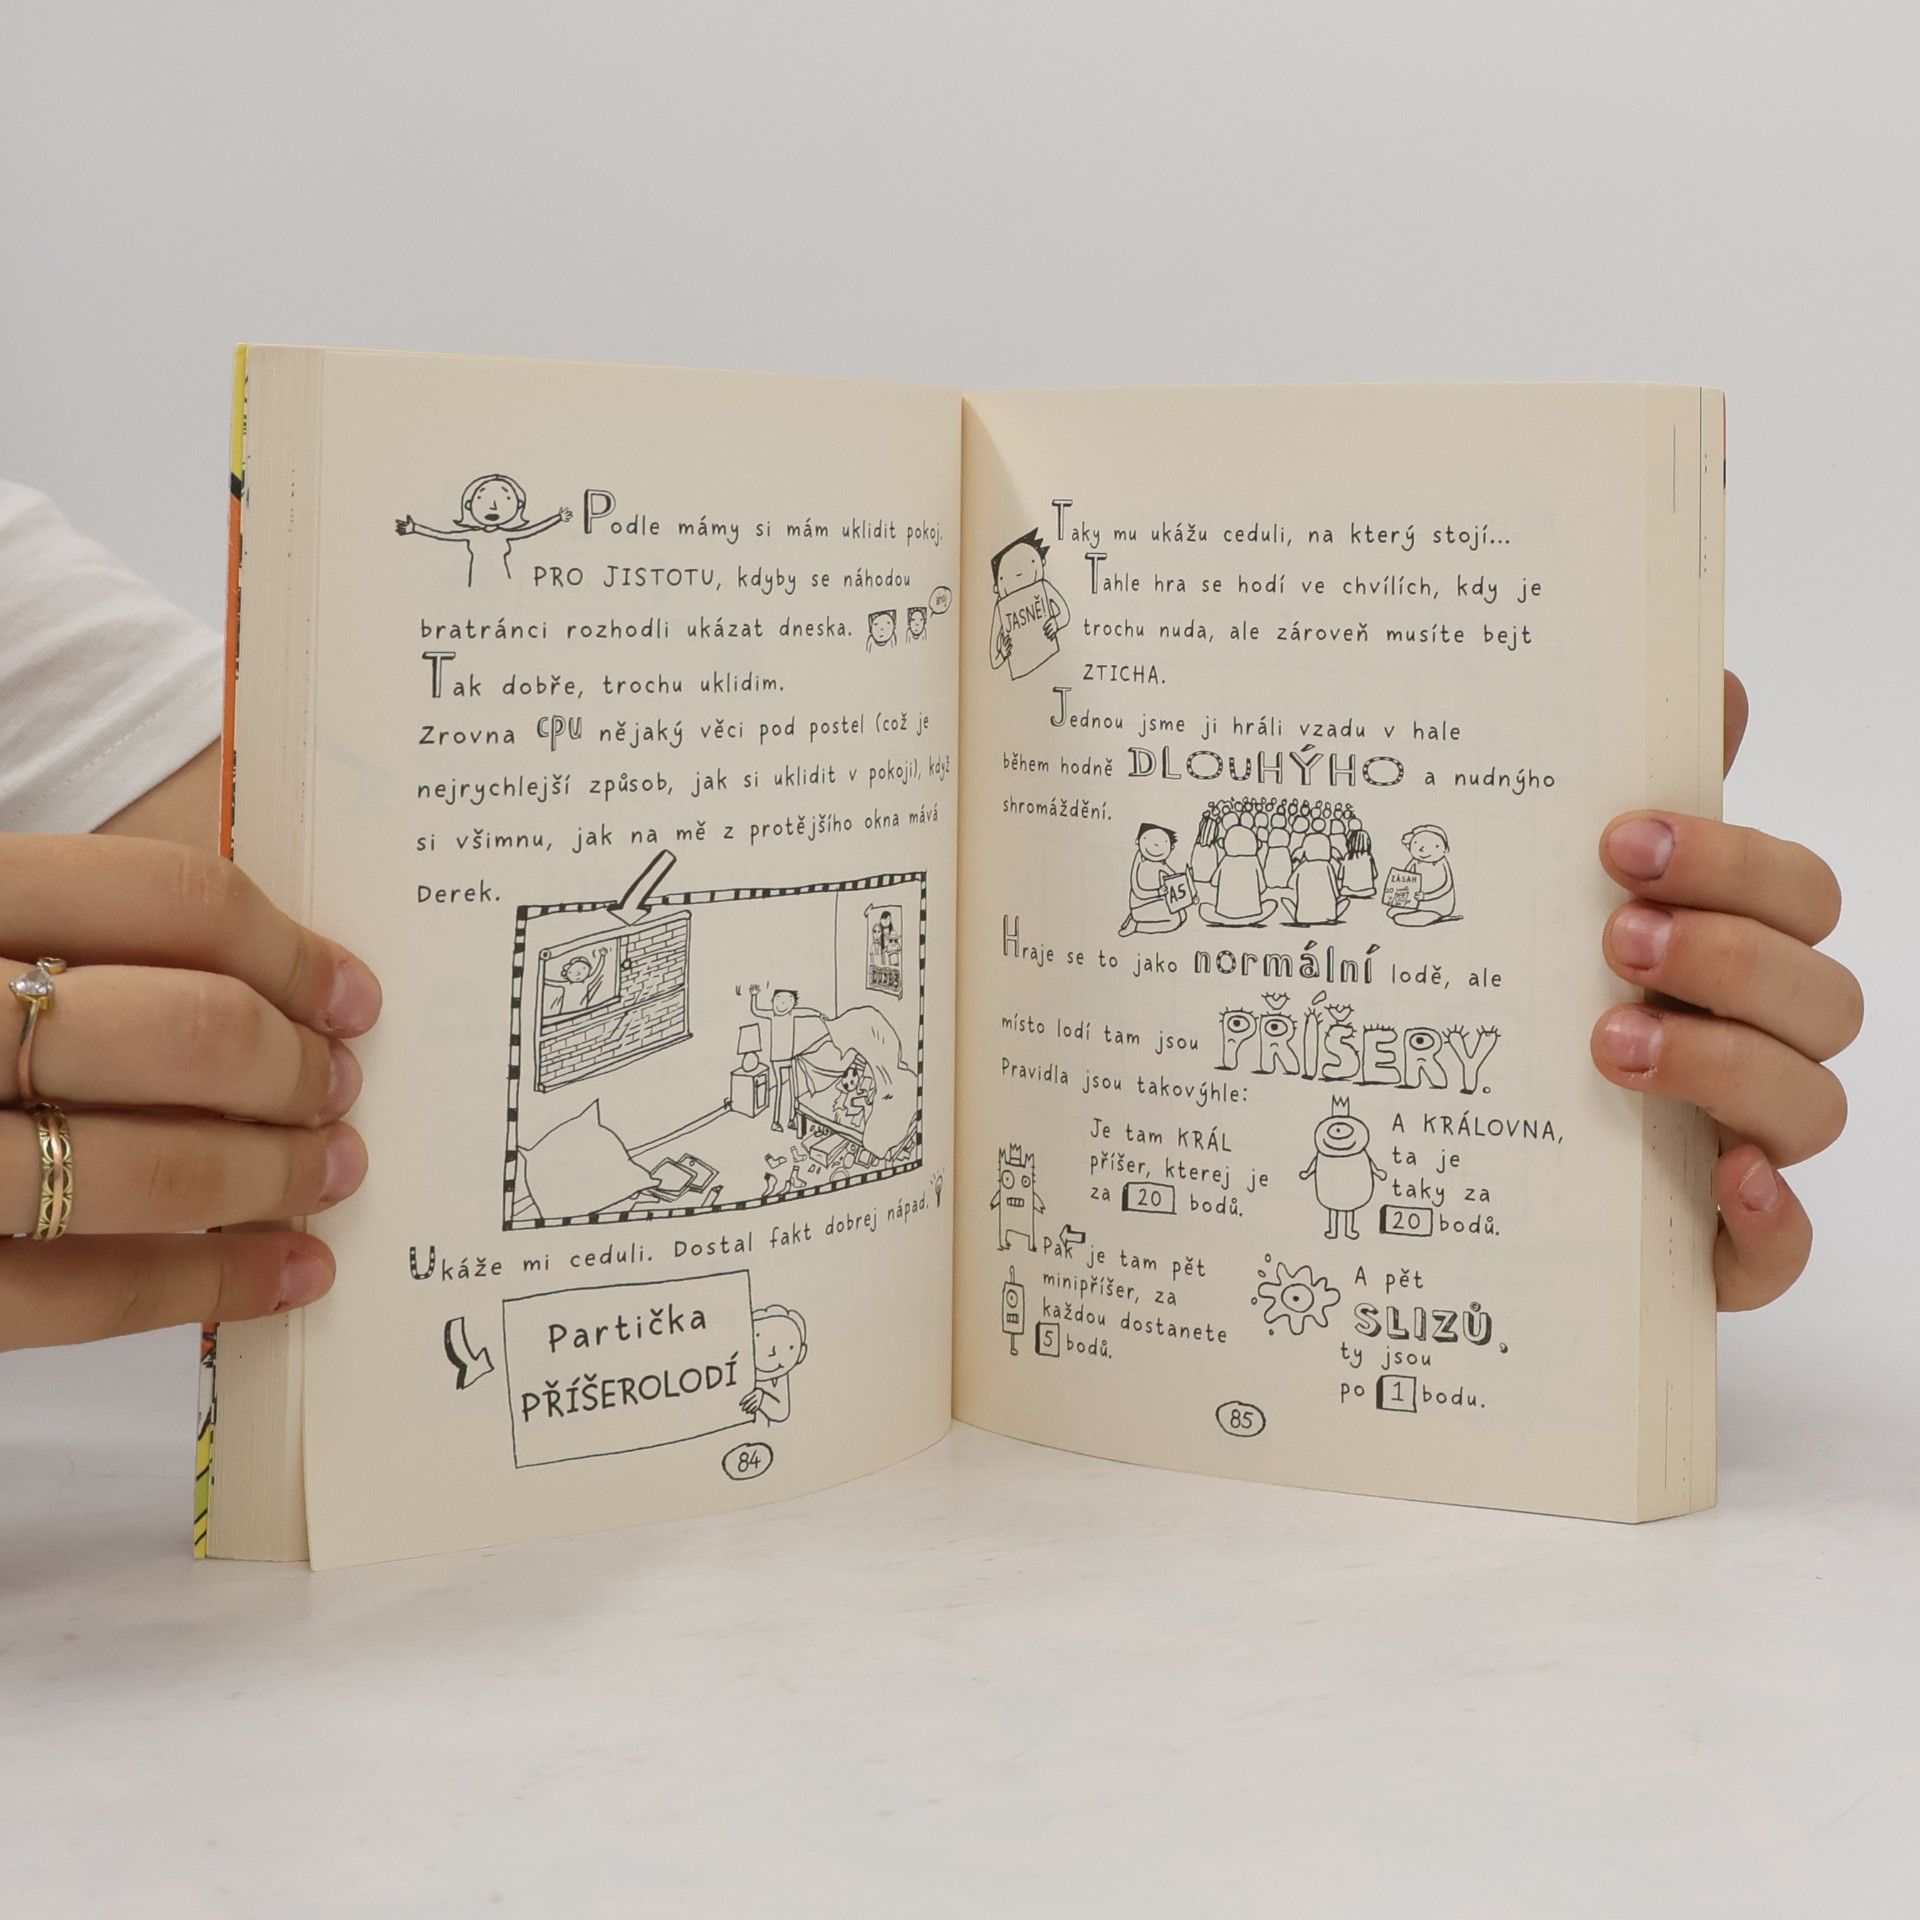 Podle mámy si mám uklidit pokoj.
PRO JISTOTU, kdyby se náhodou
bratránci rozhodli ukázat dneska.
ahoj
Tak dobře, trochu uklidim.
Zrovna cpu nějaký věci pod postel (což je
nejrychlejší způsob, jak si uklidit v pokoji), když
si všimnu, jak na mě z protějšího okna mává
Derek.
Ukáže mi ceduli. Dostal fakt dobrej nápad.
Partička
PŘÍŠEROLODÍ
84
Taky mu ukážu ceduli, na který stojí...
JASNĚ!
Tahle hra se hodí ve chvílích, kdy je
trochu nuda, ale zároveň musíte bejt
ZTICHA.
Jednou jsme ji hráli vzadu v hale
během hodně DLOUHÝHO a nudnýho
shromáždění.
A5
ZÁSAH
Hraje se to jako normální lodě, ale
místo lodí tam jsou PŘÍŠERY.
Pravidla jsou takovýhle:
Je tam KRÁL
příšer, kterej je
za 20 bodů.
A KRÁLOVNA,
ta je
taky za
20 bodů.
Pak je tam pět
minipříšer, za
každou dostanete
5 bodů.
A pět
SLIZŮ,
ty jsou
po 1 bodu.
85